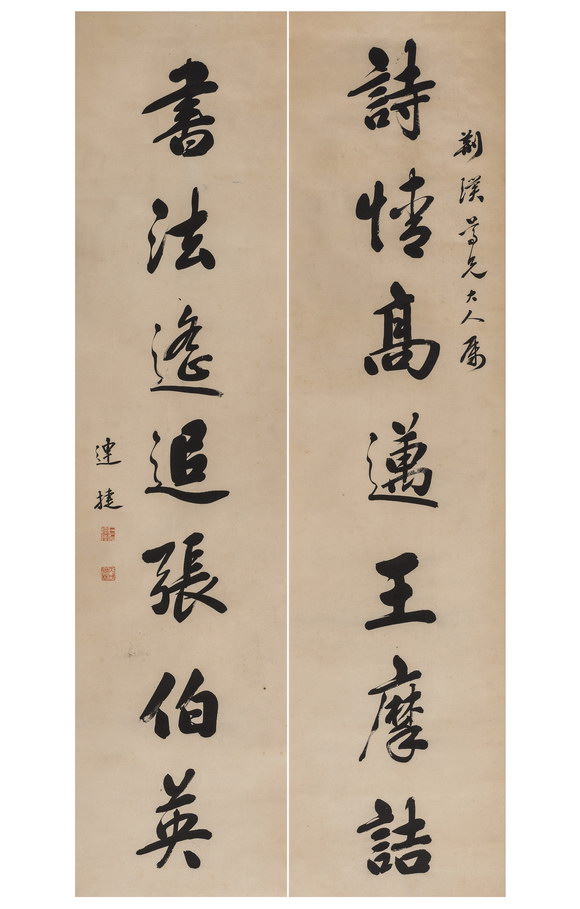 荆尊兄大人属
詩情高邁王摩詰
書法遙追張伯英
連捷